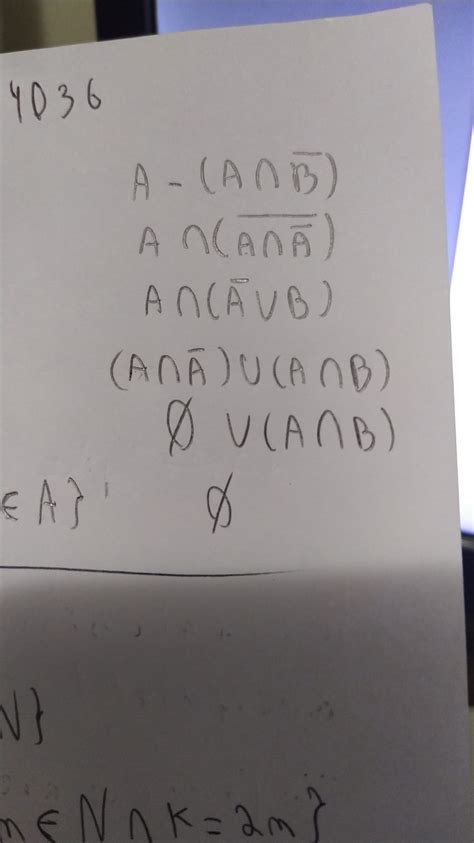 4036
A - (A ∩ B̅)
A ∩ (A̅ ̅∩̅ ̅A̅̅)
A ∩ (A̅ ∪ B)
(A ∩ A̅) ∪ (A ∩ B)
∅ ∪ (A ∩ B)
∈ A} ∅
N}
m ∈ N ∩ K = 2m}